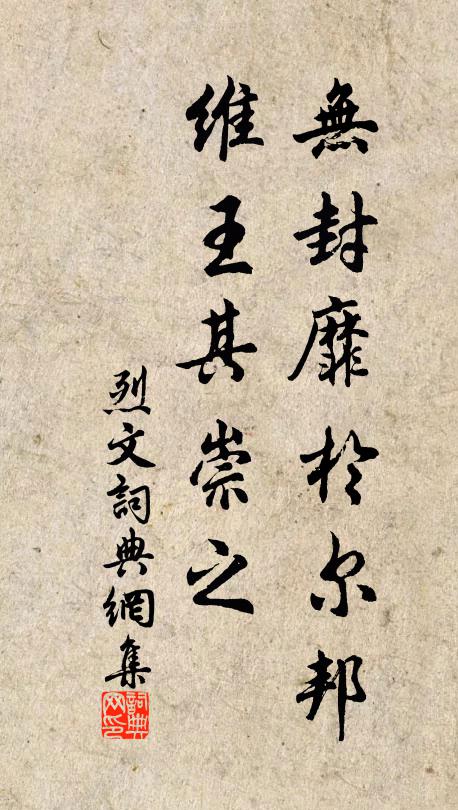 無封靡於尔邦
維王其崇之
烈文詞典網集
詞典网印